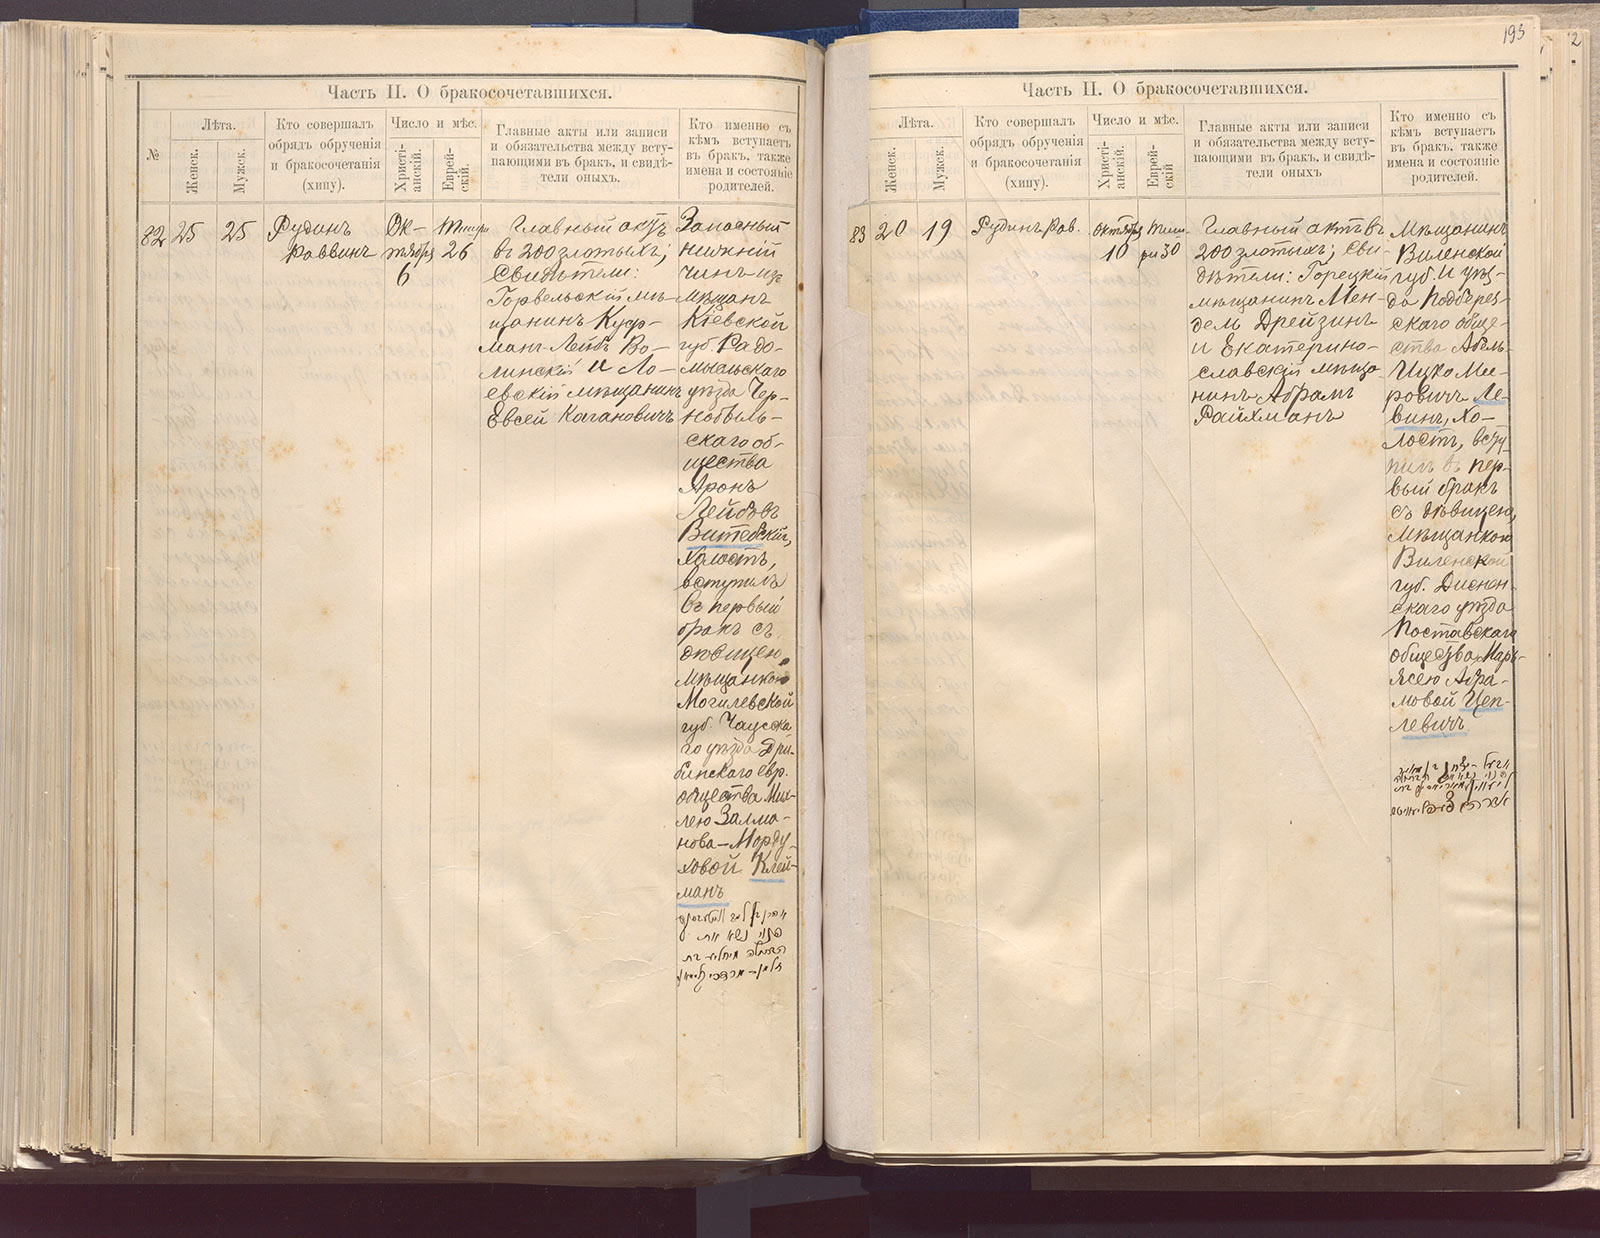 Часть II. О бракосочетавшихся.
№
Лѣта.
Женск.
Мужск.
Кто совершалъ
обрядъ обрученія
и бракосочетанія
(хипу).
Число и мѣс.
Христі-
анскій.
Еврей-
скій.
Главные акты или записи
и обязательства между всту-
пающими въ бракъ, и свидѣ-
тели оныхъ.
Кто именно съ
кѣмъ вступаетъ
въ бракъ, также
имена и состояніе
родителей.
82
25
25
Рудинъ
Раввинъ
Ок-
тября
6
Тишри
26
Главный актъ
въ 200 злотыхъ;
Свидѣтели:
Горвельскій мѣ-
щанинъ Куф-
манъ-Лейбъ Во-
линскій и Ло-
евскій мѣщанинъ
Евсей Кагановичъ
Запасный
нижній
чинъ изъ
мѣщанъ
Кіевской
губ. Радо-
мысльскаго
уѣзда Чер-
нобыль-
скаго об-
щества
Аронъ
Лейбовъ
Витебскій,
холостъ,
вступилъ
въ первый
бракъ съ
дѣвицею,
мѣщанкою
Могилевской
губ. Чаусска-
го уѣзда Дри-
бинскаго евр.
общества Мих-
лею Залма-
нова-Морду-
ховой Клей-
манъ
פנוי נשא את
הבתולה מיחליע בת
זלמן-מרדכי קליימאן
195
2
Часть II. О бракосочетавшихся.
Лѣта.
Женск.
Мужск.
Кто совершалъ
обрядъ обрученія
и бракосочетанія
(хипу).
Число и мѣс.
Христі-
анскій.
Еврей-
скій.
Главные акты или записи
и обязательства между всту-
пающими въ бракъ, и свидѣ-
тели оныхъ
Кто именно съ
кѣмъ вступаетъ
въ бракъ, также
имена и состояніе
родителей.
83
20
19
Рудинъ Рав.
Октября
10
Тиш-
ри 30
Главный актъ въ
200 злотыхъ; сви-
дѣтели: Горецкій
мѣщанинъ Мен-
дель Дрейзинъ
и Екатерино-
славскій мѣща-
нинъ Абрамъ
Райхманъ
Мѣщанинъ
Виленской
губ. и уѣз-
да Подберез-
скаго обще-
ства Абель-
Ицхо Ме-
ровичъ Ле-
винъ, хо-
лостъ, всту-
пилъ въ пер-
вый бракъ
съ дѣвицею,
мѣщанкою
Виленской
губ. Диснен-
скаго уѣзда
Поставскаго
общества Марь-
ясею Абра-
мовой Цеп-
левичъ